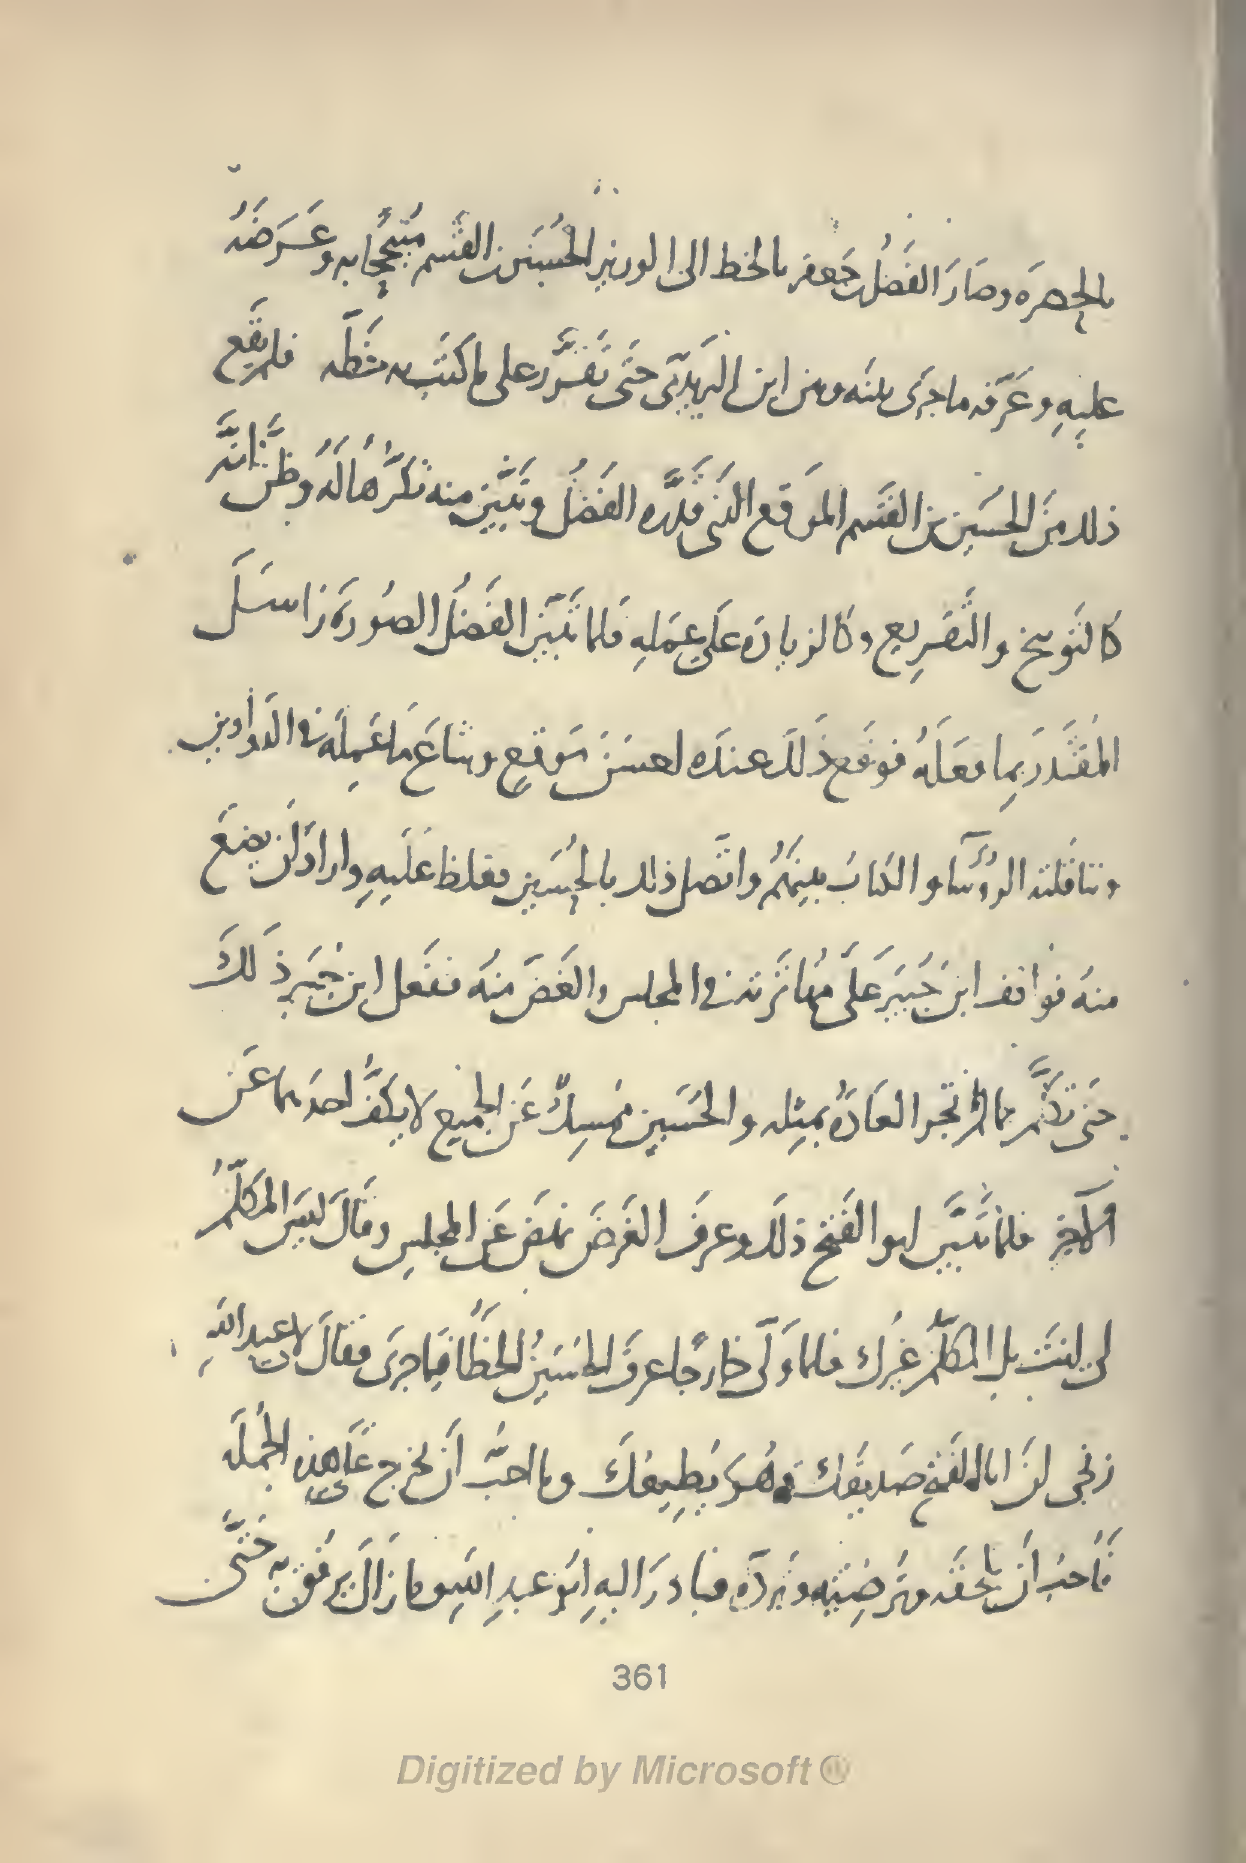 بالحضرة وصار الفضل بن جعفر بالخط الى الوزير الحسين بن القسم متبجحا به وعرضه
عليه وعرفه ما جرى بينه وبين ابن البريدى حتى تقرر على ما كتب به خطه فلم يقع
ذلك من الحسين بن القسم الموقع الذى قدره الفضل وتبين منه تكرها له وظن انه
كالتوبيخ والتقريع وكالزيادة على عمله فلما تبين الفضل الصورة راسل
المقتدر بما فعله فوقع ذلك عنده احسن موقع وشاع ما عمله فى الدواوين
وتناقلته الرؤسآ والكتاب بينهم واتصل ذلك بالحسين فغلظ عليه واراد ان يضع
منه فواقف ابن جبير على مهاترته فى المجلس والغض منه ففعل ابن جبير ذلك
حتى تكلم بما لم تجر العادة بمثله والحسين ممسك عن الجميع لا يكف احدهما عن
الآخر فلما تبين ابو الفتح ذلك وعرف الغرض نهض عن المجلس وقال ليس المكلم
لى انت بل المكلم غيرك فلما ولى خارجا عرف الحسين الخطا فيما جرى فقال لابى عبد الله
زنجى ان ابا الفتح صديقك وهو يطيعك وما احب ان يخرج على هذه الجملة
فاحب ان تلحقه وترضيه وترده فبادر اليه ابو عبد الله وما زال يرفق به حتى
361
Digitized by Microsoft ®